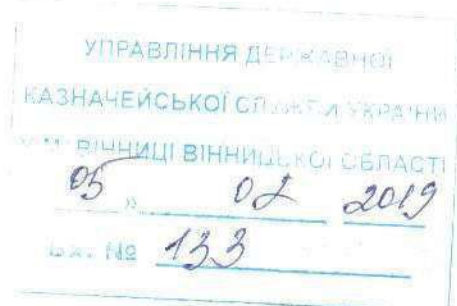 УПРАВЛІННЯ ДЕРЖАВНОЇ
КАЗНАЧЕЙСЬКОЇ СЛУЖБИ УКРАЇНИ
У М. ВІННИЦІ ВІННИЦЬКОЇ ОБЛАСТІ
05 » 02 2019
Вх. № 133